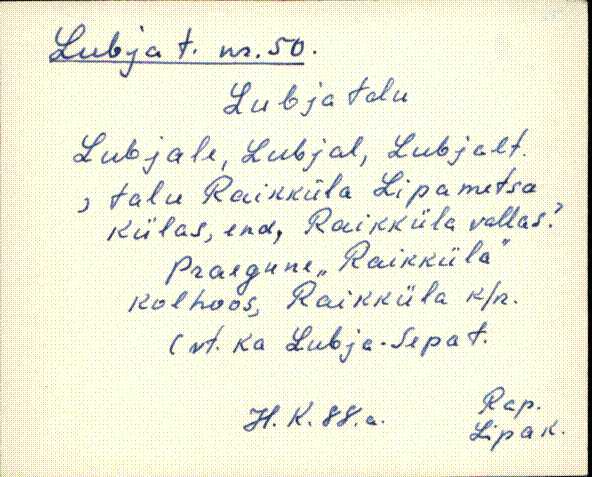 Lubja t. nr. 50.
Lubja talu
Lubjale, Lubjal, Lubjalt.
, talu Raikküla Lipametsa
külas, end, Raikküla vallas.?
Praegune „Raikküla"
kolhoos, Raikküla k/n.
(vt. ka Lubja-Sepa t.
H. K. 88. a.
Rap.
Lipa k.